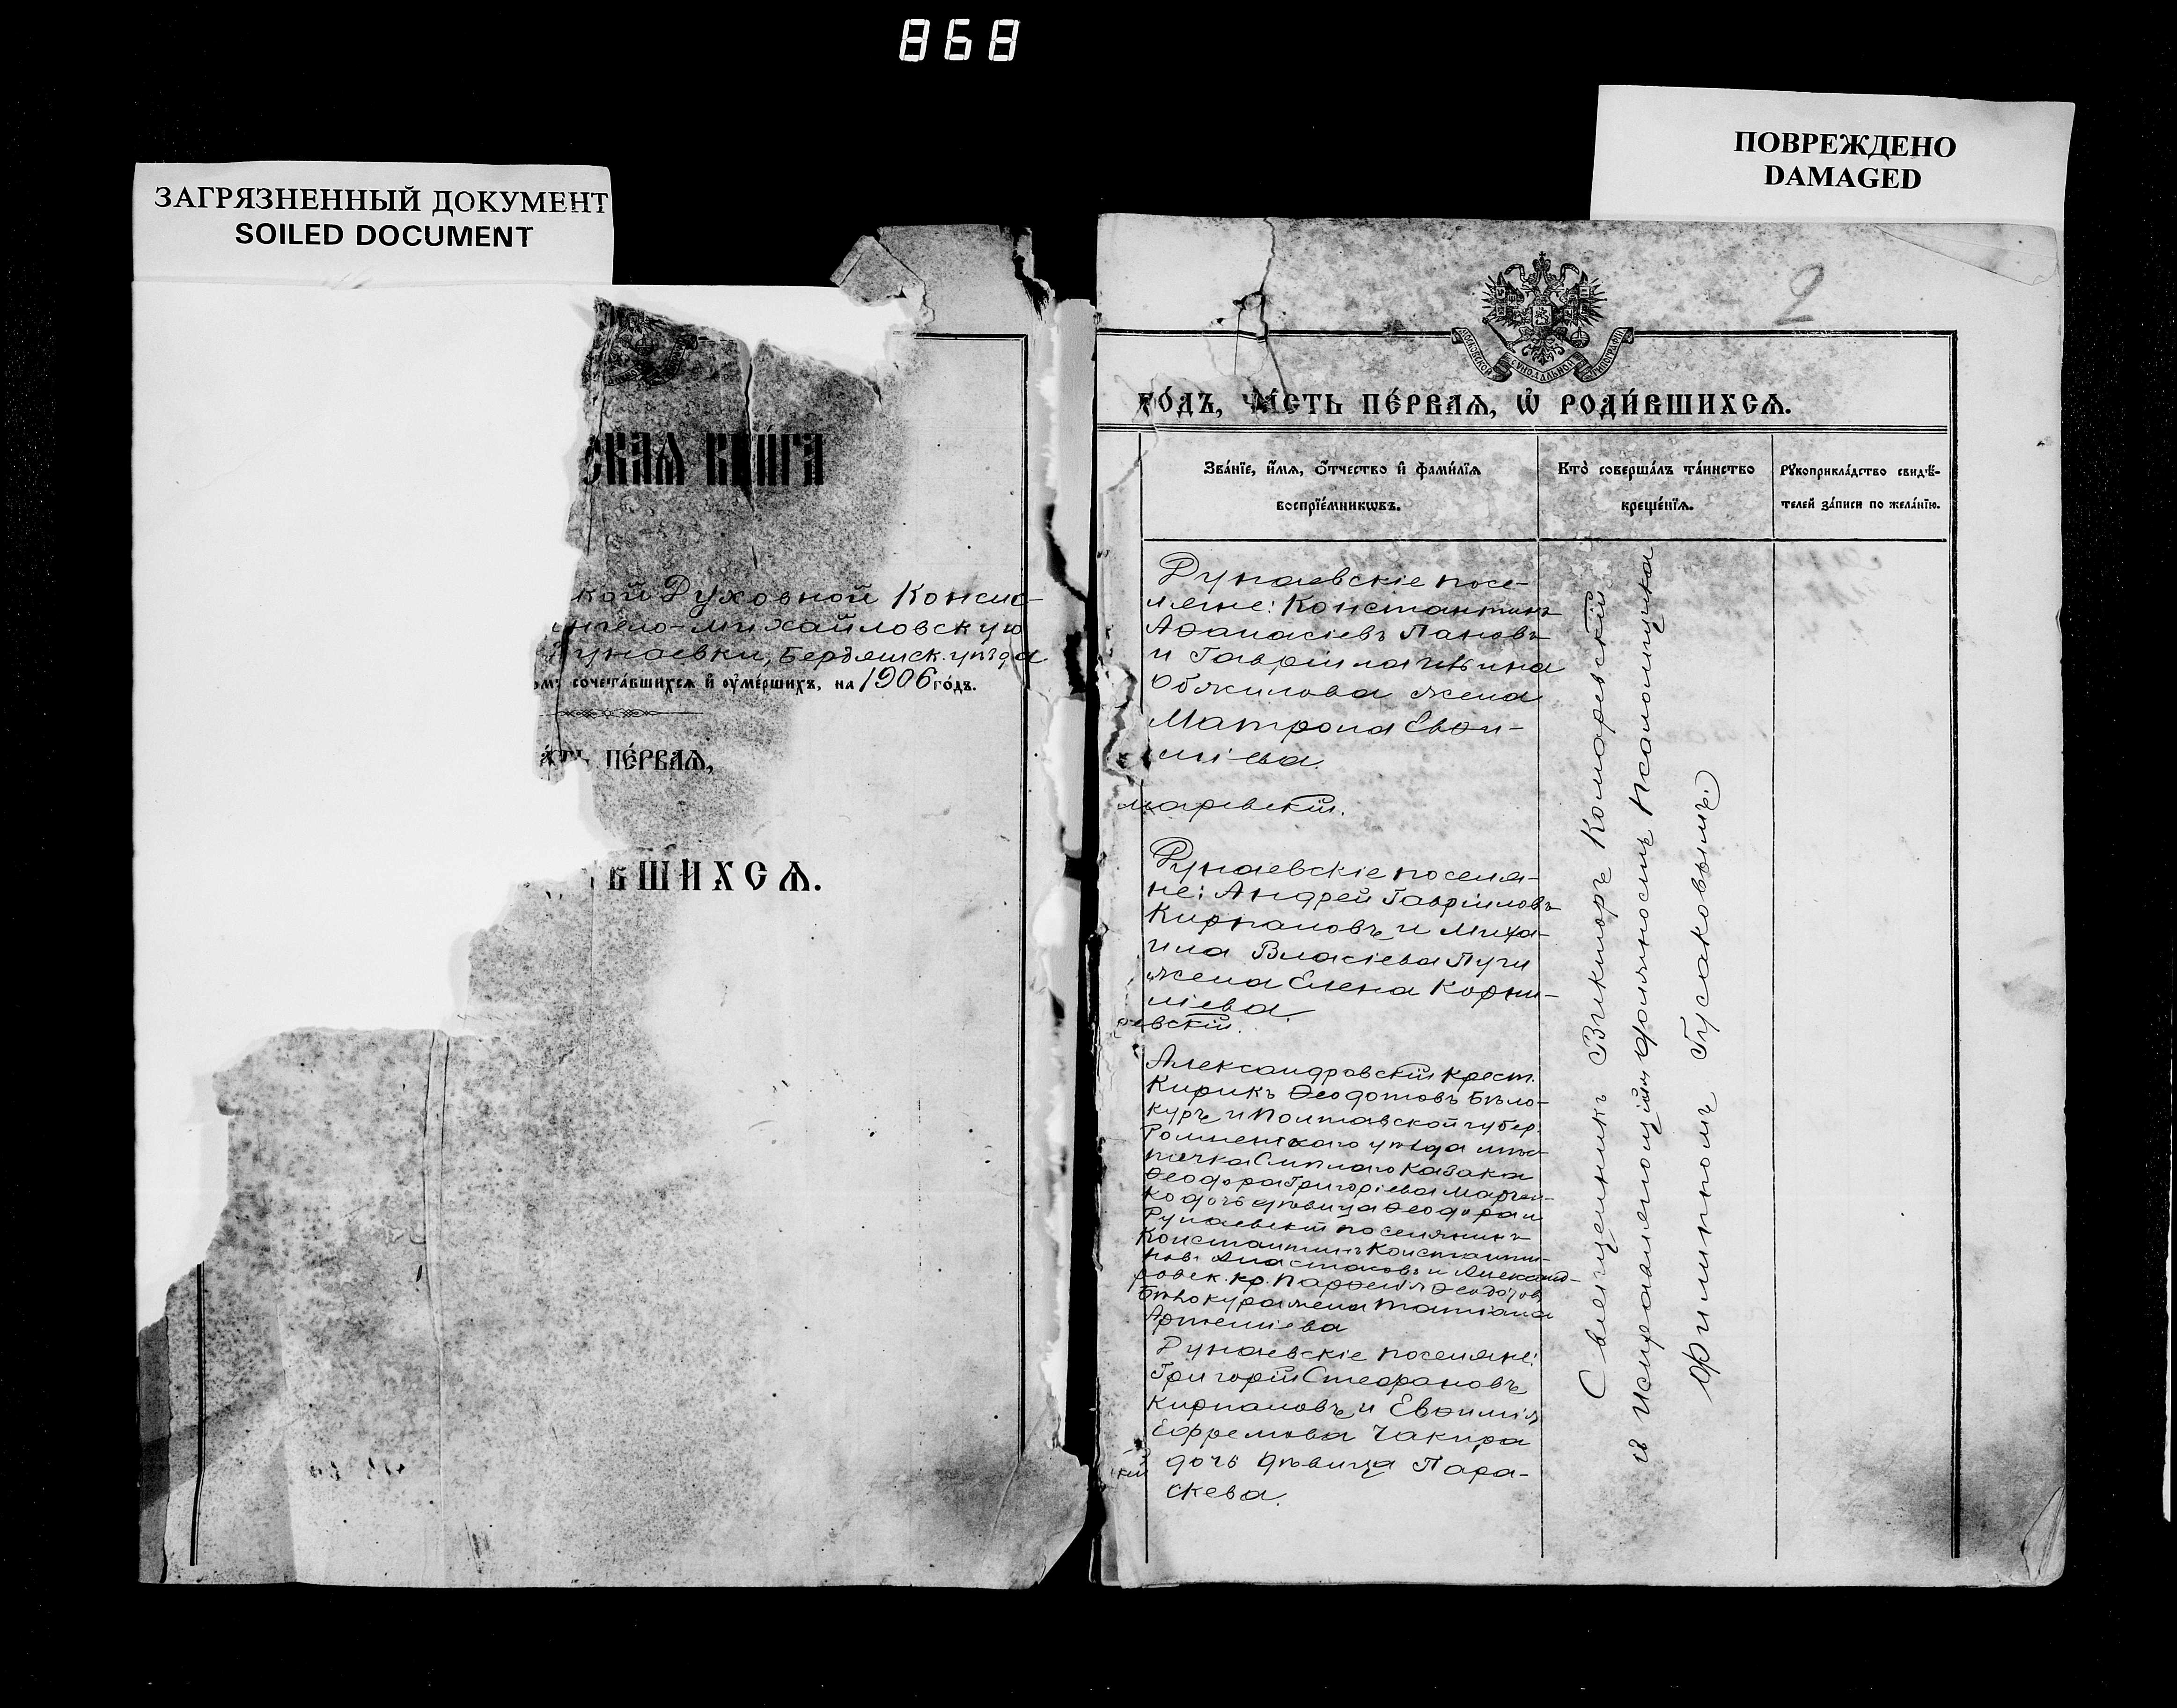 868
ЗАГРЯЗНЕННЫЙ ДОКУМЕНТ
SOILED DOCUMENT
ПОВРЕЖДЕНО
DAMAGED
СКАѦ КНИГА
кой Духовной Консис-
нгело-Михайловскую
Дунаевки, Бердянск. уѣзда
сочета́вшихсѧ и҆ оу҆ме́ршихъ, на 1906 го́дъ.
ПЕ́РВАѦ,
ВШИХСѦ.
2
МОСКОВСКОЙ СѴНОДАЛЬНОЙ ТИПОГРАФІИ
ГО́ДЪ, ЧА́СТЬ ПЕ́РВАѦ, Ѡ҆ РОДИ́ВШИХСѦ.
Зва́нїе, и҆́мѧ, ѻ҆́тчество и҆ фами́лїѧ
воспрїе́мникѡвъ.
Кто̀ соверша́лъ та́инство
креще́нїѧ.
Рꙋкоприкла́дство свидѣ́-
телей за́писи по жела́нїю.
Дунаевскіе посе-
ляне: Константинъ
Аѳанасіевъ Пановъ
и Гавріила
жена
Матрона Евѳи-
міева.
маревскій.
Дунаевскіе поселя-
не: Андрей Гавріиловъ
Кирпановъ и Миха-
ила Власіева Пучи
жена Елена Корни-
ліева.
ревскій.
Александровскій крест.
Кирикъ Ѳеодотовъ Бѣло-
куръ и Полтавской губер.
Роменскаго уѣзда мѣс-
течка Смѣлаго казака
Ѳеодора Григоріева Марчен-
ко дочь дѣвица Ѳеодора и
Дунаевскій поселянинъ
Константинъ Константи-
новъ Анастасовъ и Александ-
ровск. кр. Парѳенія Ѳеодотов.
Бѣлокура жена Татіана
Артеміева
Дунаевскіе поселяне:
Григорій Стефановъ
Кирпановъ и Евѳимія
Ефремова Чакира
дочь дѣвица Пара-
скева.
кій
Священникъ Викторъ Комаревскій
и Исправляющій должность Псаломщика
Филиппомъ Гусаковымъ.